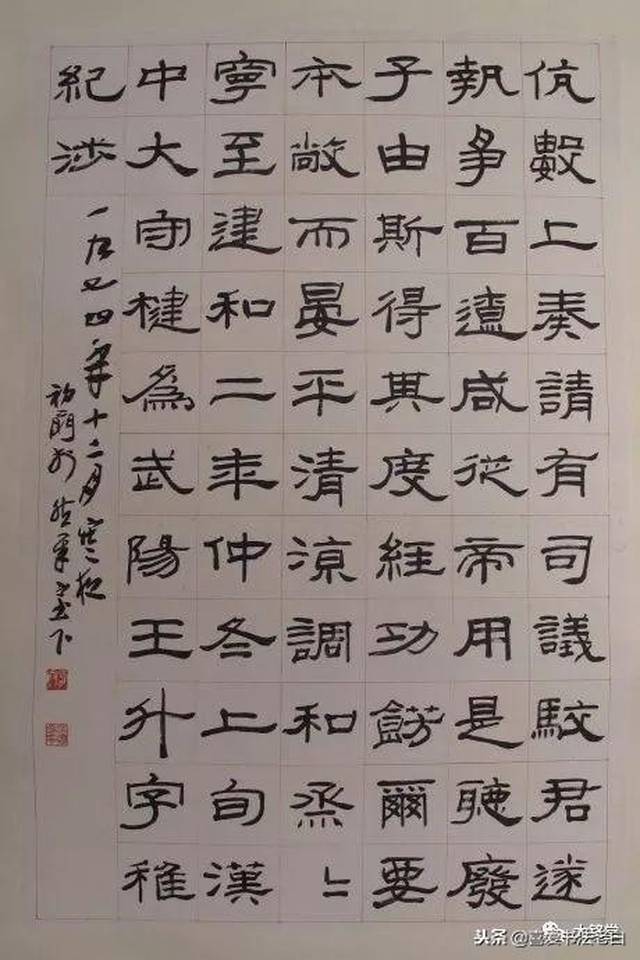 伉數上奏請有司議駮君遂
執爭百遼咸從帝用是聽廢
子由斯得其度經功飭爾要
本敞而晏平清涼調和烝〻
寧至建和二年仲冬上旬漢
中大守楗為武陽王升字稚
紀涉
一九七四年十二月寒夜
头条 @喜爱书法老白